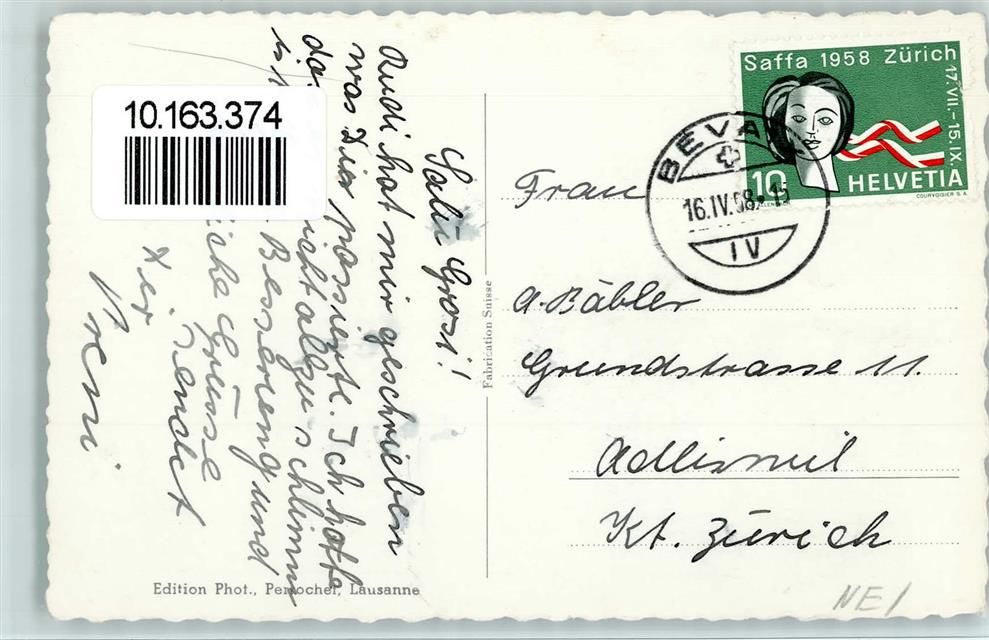 10.163.374
Sali Grosi!
Rudi hat mir geschrieben
was Dir passierte. Ich hoffe
da
ist nicht alzu schlimm
Besserung und
Grüsse
sendet
Dir
Vreni
Edition Phot., Perrochet, Lausanne
Fabrication Suisse
Saffa 1958 Zürich
17.VII.–15.IX.
10 HELVETIA
COURVOISIER S.A.
BEVAIX
16.IV.58 - 15
IV
Frau
A. Bäbler
Grundstrasse 11.
Adliswil
Kt. Zürich
NE /